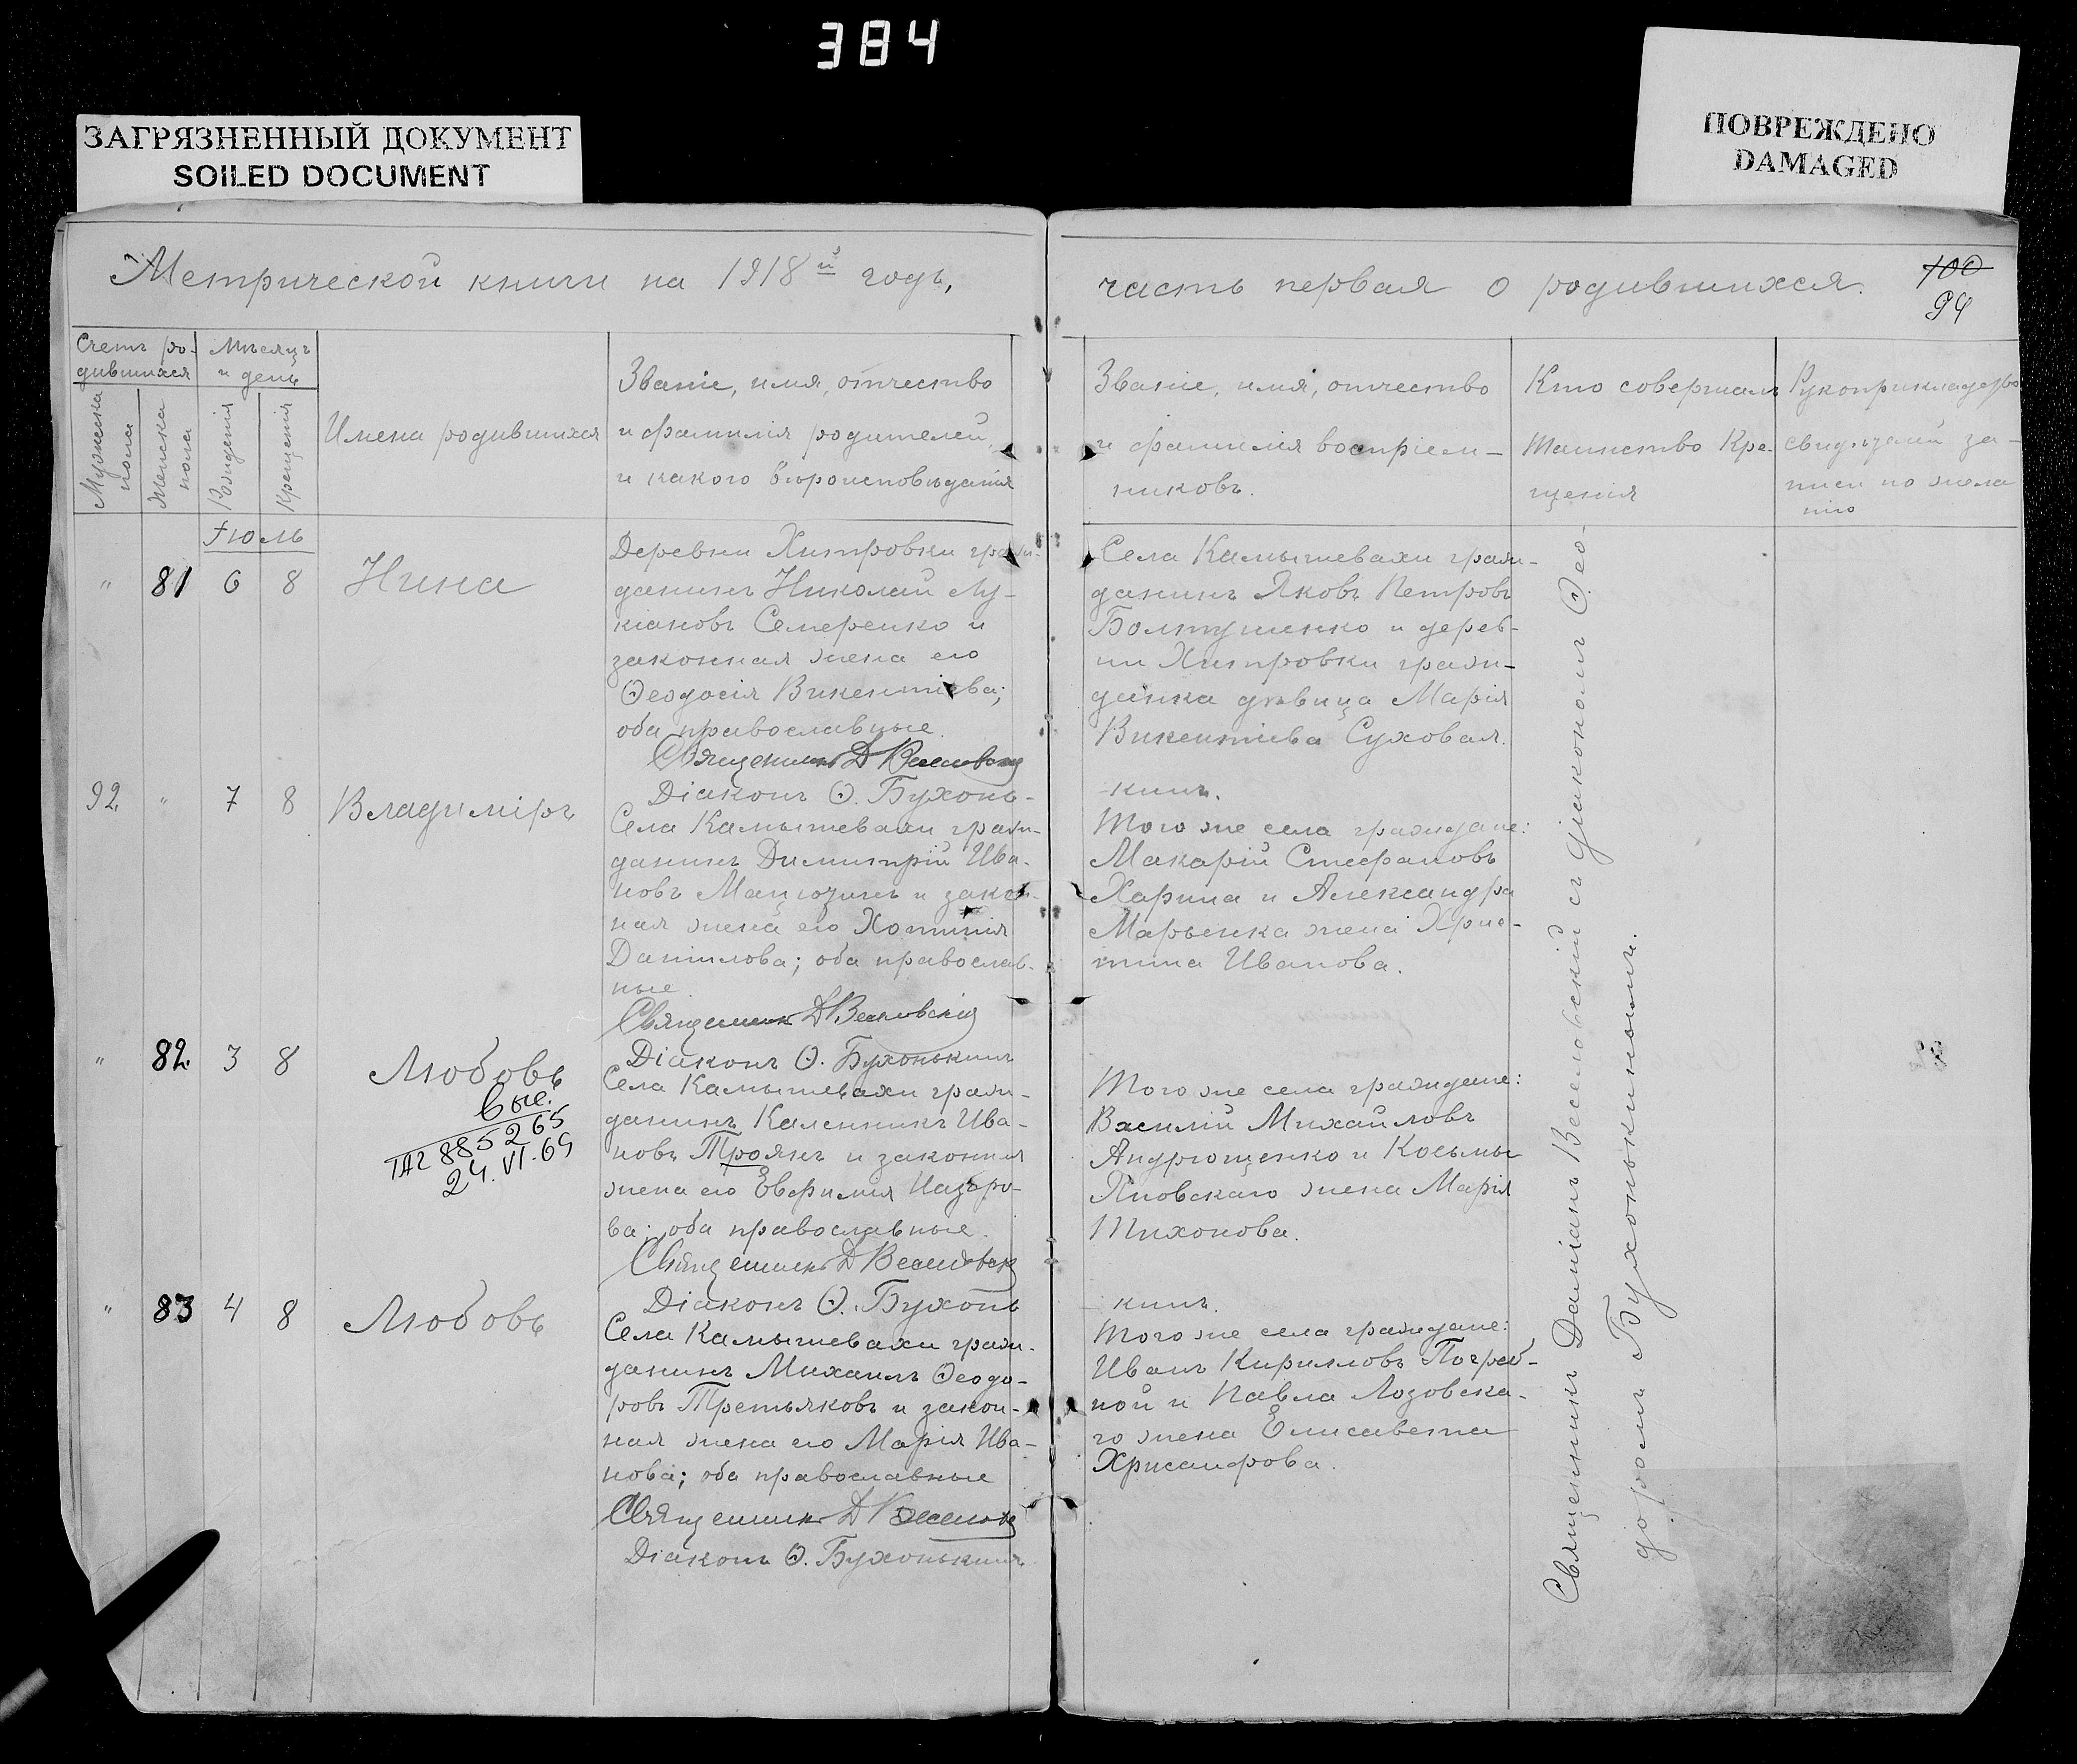 384
ЗАГРЯЗНЕННЫЙ ДОКУМЕНТ
SOILED DOCUMENT
ПОВРЕЖДЕНО
DAMAGED
Метрической книги на 1918й годъ,
часть первая о родившихся.
100
94
Счетъ ро-
дившихся
Мѣсяцъ
и день
Мужеска
пола
Женска
пола
Рожденія
Крещенія
Имена родившихся
Званіе, имя, отчество
и фамилія родителей,
и какого вѣроисповѣданія
Званіе, имя, отчество
и фамилія воспріем-
никовъ.
Кто совершалъ
таинство Кре-
щенія
Рукоприкладство
свидѣтелей за-
писи по жела
нію
Іюль
" 81 6 8 Нина
Деревни Хитровки граж-
данинъ Николай Лу-
кіановъ Семеренко и
законная жена его
Ѳеодосія Викентіева;
оба православные.
Священникъ Д
Діаконъ Ѳ. Бухонь-
Села Камышевахи граж-
данинъ Яковъ Петровъ
Болтушенко и дерев-
ни Хитровки граж-
данка дѣвица Марія
Викентіева Суховая.
кинъ.
92 " 7 8 Владиміръ
Села Камышевахи граж-
данинъ Димитрій Ива-
новъ и закон-
ная жена его Хотинія
Данилова; оба православ-
ные.
Священникъ Д Веселовскій
Діаконъ Ѳ. Бухонькинъ
Того же села граждане:
Макарій Стефановъ
Харина и Александра
Марьенка жена Хрис-
тина Иванова.
" 82 3 8 Любовь
вые.
885265
24.VI.69
Села Камышевахи граж-
данинъ Каленникъ Ива-
новъ Троянъ и законная
жена его Евфимія Назаро-
ва; оба православные.
Священникъ Д
Діаконъ Ѳ. Бухонь
Того же села граждане:
Василій Михайловъ
Андрющенко и Косьмы
Яновскаго жена Марія
Тихонова.
кинъ.
" 83 4 8 Любовь
Села Камышевахи граж-
данинъ Михаилъ Ѳеодо-
ровъ Третьяковъ и закон-
ная жена его Марія Ива-
нова; оба православные
Священникъ Д
Діаконъ Ѳ. Бухонькинъ
Того же села граждане:
Иванъ Кирилловъ Погреб-
ной и Павла Лозовска-
го жена Елисавета
Хрисанфова.
Священникъ Даміанъ Веселовскій съ діакономъ Ѳео-
доромъ Бухонькинымъ.